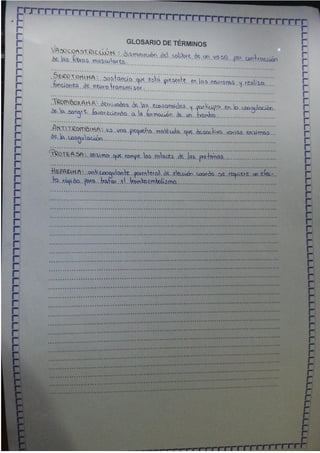 GLOSARIO DE TÉRMINOS
VASOCONSTRICCIÓN: disminución del calibre de un vaso por contracción
de las fibras musculares.
SEROTONINA: sustancia que está presente en las neuronas y realiza
funciones de neurotransmisor.
TROMBOXANA: derivados de los eicosanoides y participa en la coagulación
de la sangre favoreciendo a la formación de un trombo.
ANTITROMBINA: es una pequeña molécula que desactiva varias enzimas
de la coagulación.
PROTEASA: enzima que rompe los enlaces de las proteínas.
HEPARINA: anticoagulante parenteral de elección cuando se requiere un efec-
to rápido para tratar el tromboembolismo.